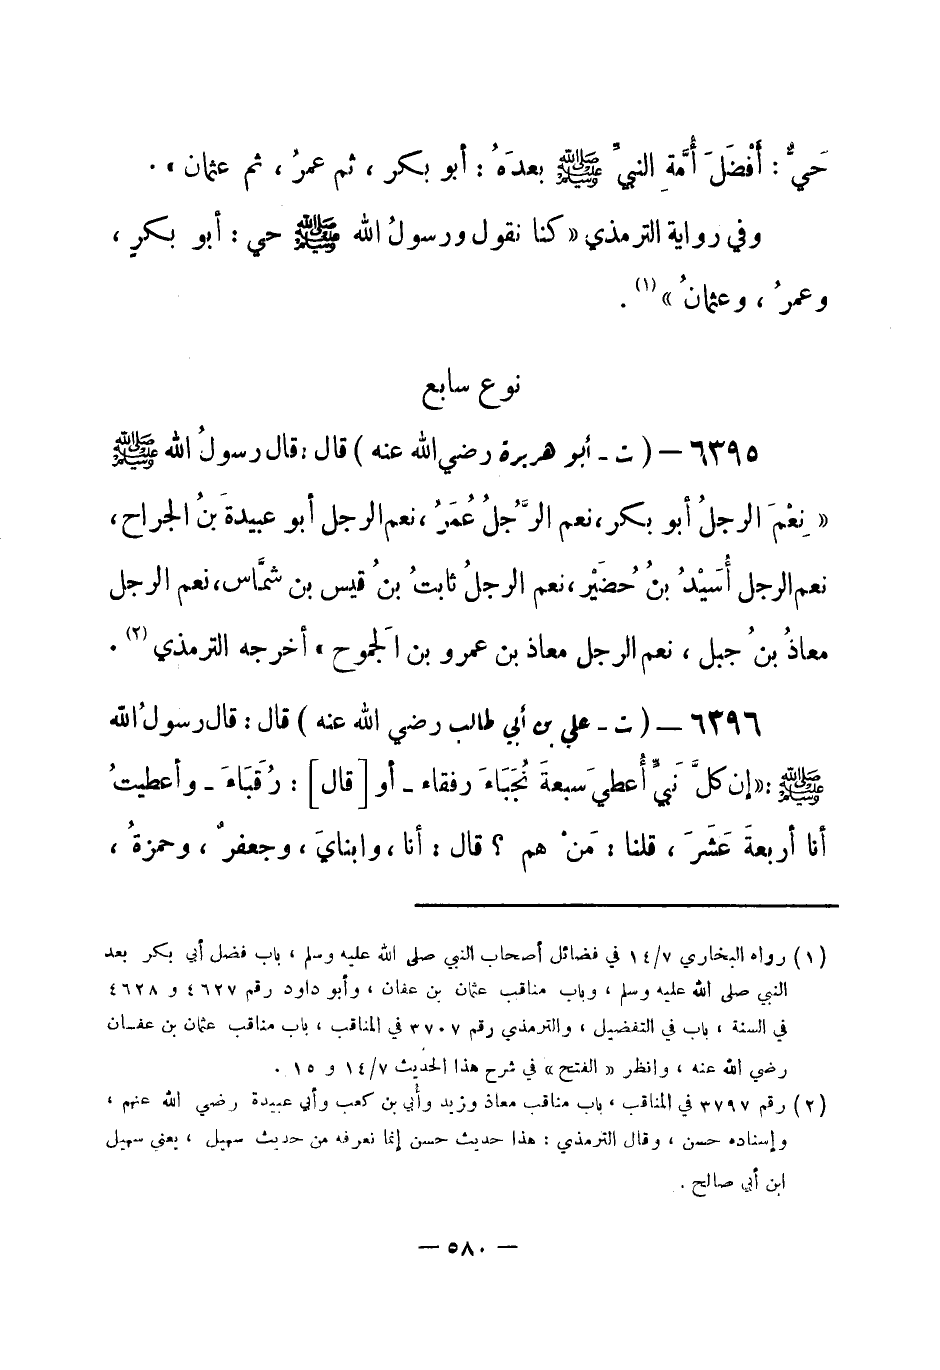 حَيٌّ : أَفْضَلَ أُمَّةِ النبيِّ ﷺ بعدَهُ : أبو بكر ، ثم عمرُ ، ثم عثمان » .
وفي رواية الترمذي « كنا نقول ورسولُ الله ﷺ حي : أبو بكرٍ ،
وعمرُ ، وعثمانُ » (١) .
نوع سابع
٦٣٩٥ – ( ت ـ أبو هريرة رضي الله عنه ) قال : قال رسولُ الله ﷺ
« نِعْمَ الرجلُ أبو بكر ، نعم الرَّجُلُ عُمَرُ ، نعم الرجل أبو عبيدةَ بنُ الجراح ،
نعم الرجل أُسَيْدُ بنُ حُضَيْر ، نعم الرجلُ ثابتُ بنُ قيس بن شمَّاس ، نعم الرجل
معاذُ بنُ جبل ، نعم الرجل معاذ بن عمرو بن الَجموح » أخرجه الترمذي (٢) .
٦٣٩٦ – ( ت ـ علي بن أبي طالب رضي الله عنه ) قال : قال رسولُ الله
ﷺ : « إن كلَّ نَبيٍّ أُعطيَ سبعةَ نُجَبَاءَ رفقاء ـ أو [ قال ] : رُقَبَاءَ ـ وأعطيتُ
أنا أربعةَ عَشَرَ ، قلنا : مَنْ هم ؟ قال : أنا ، وابنايَ ، وجعفرٌ ، وحمزةُ ،
(١) رواه البخاري ١٤/٧ في فضائل أصحاب النبي صلى الله عليه وسلم ، باب فضل أبي بكر بعد
النبي صلى الله عليه وسلم ، وباب مناقب عثمان بن عفان ، وأبو داود رقم ٤٦٢٧ و ٤٦٢٨
في السنة ، باب في التفضيل ، والترمذي رقم ٣٧٠٧ في المناقب ، باب مناقب عثمان بن عفـان
رضي الله عنه ، وانظر « الفتح » في شرح هذا الحديث ١٤/٧ و ١٥ .
(٢) رقم ٣٧٩٧ في المناقب ، باب مناقب معاذ وزيد وأُبي بن كعب وأبي عبيدة رضي الله عنهم ،
وإسناده حسن ، وقال الترمذي : هذا حديث حسن إنما نعرفه من حديث سهيل ، يعني سهيل
ابن أبي صالح .
– ٥٨٠ –